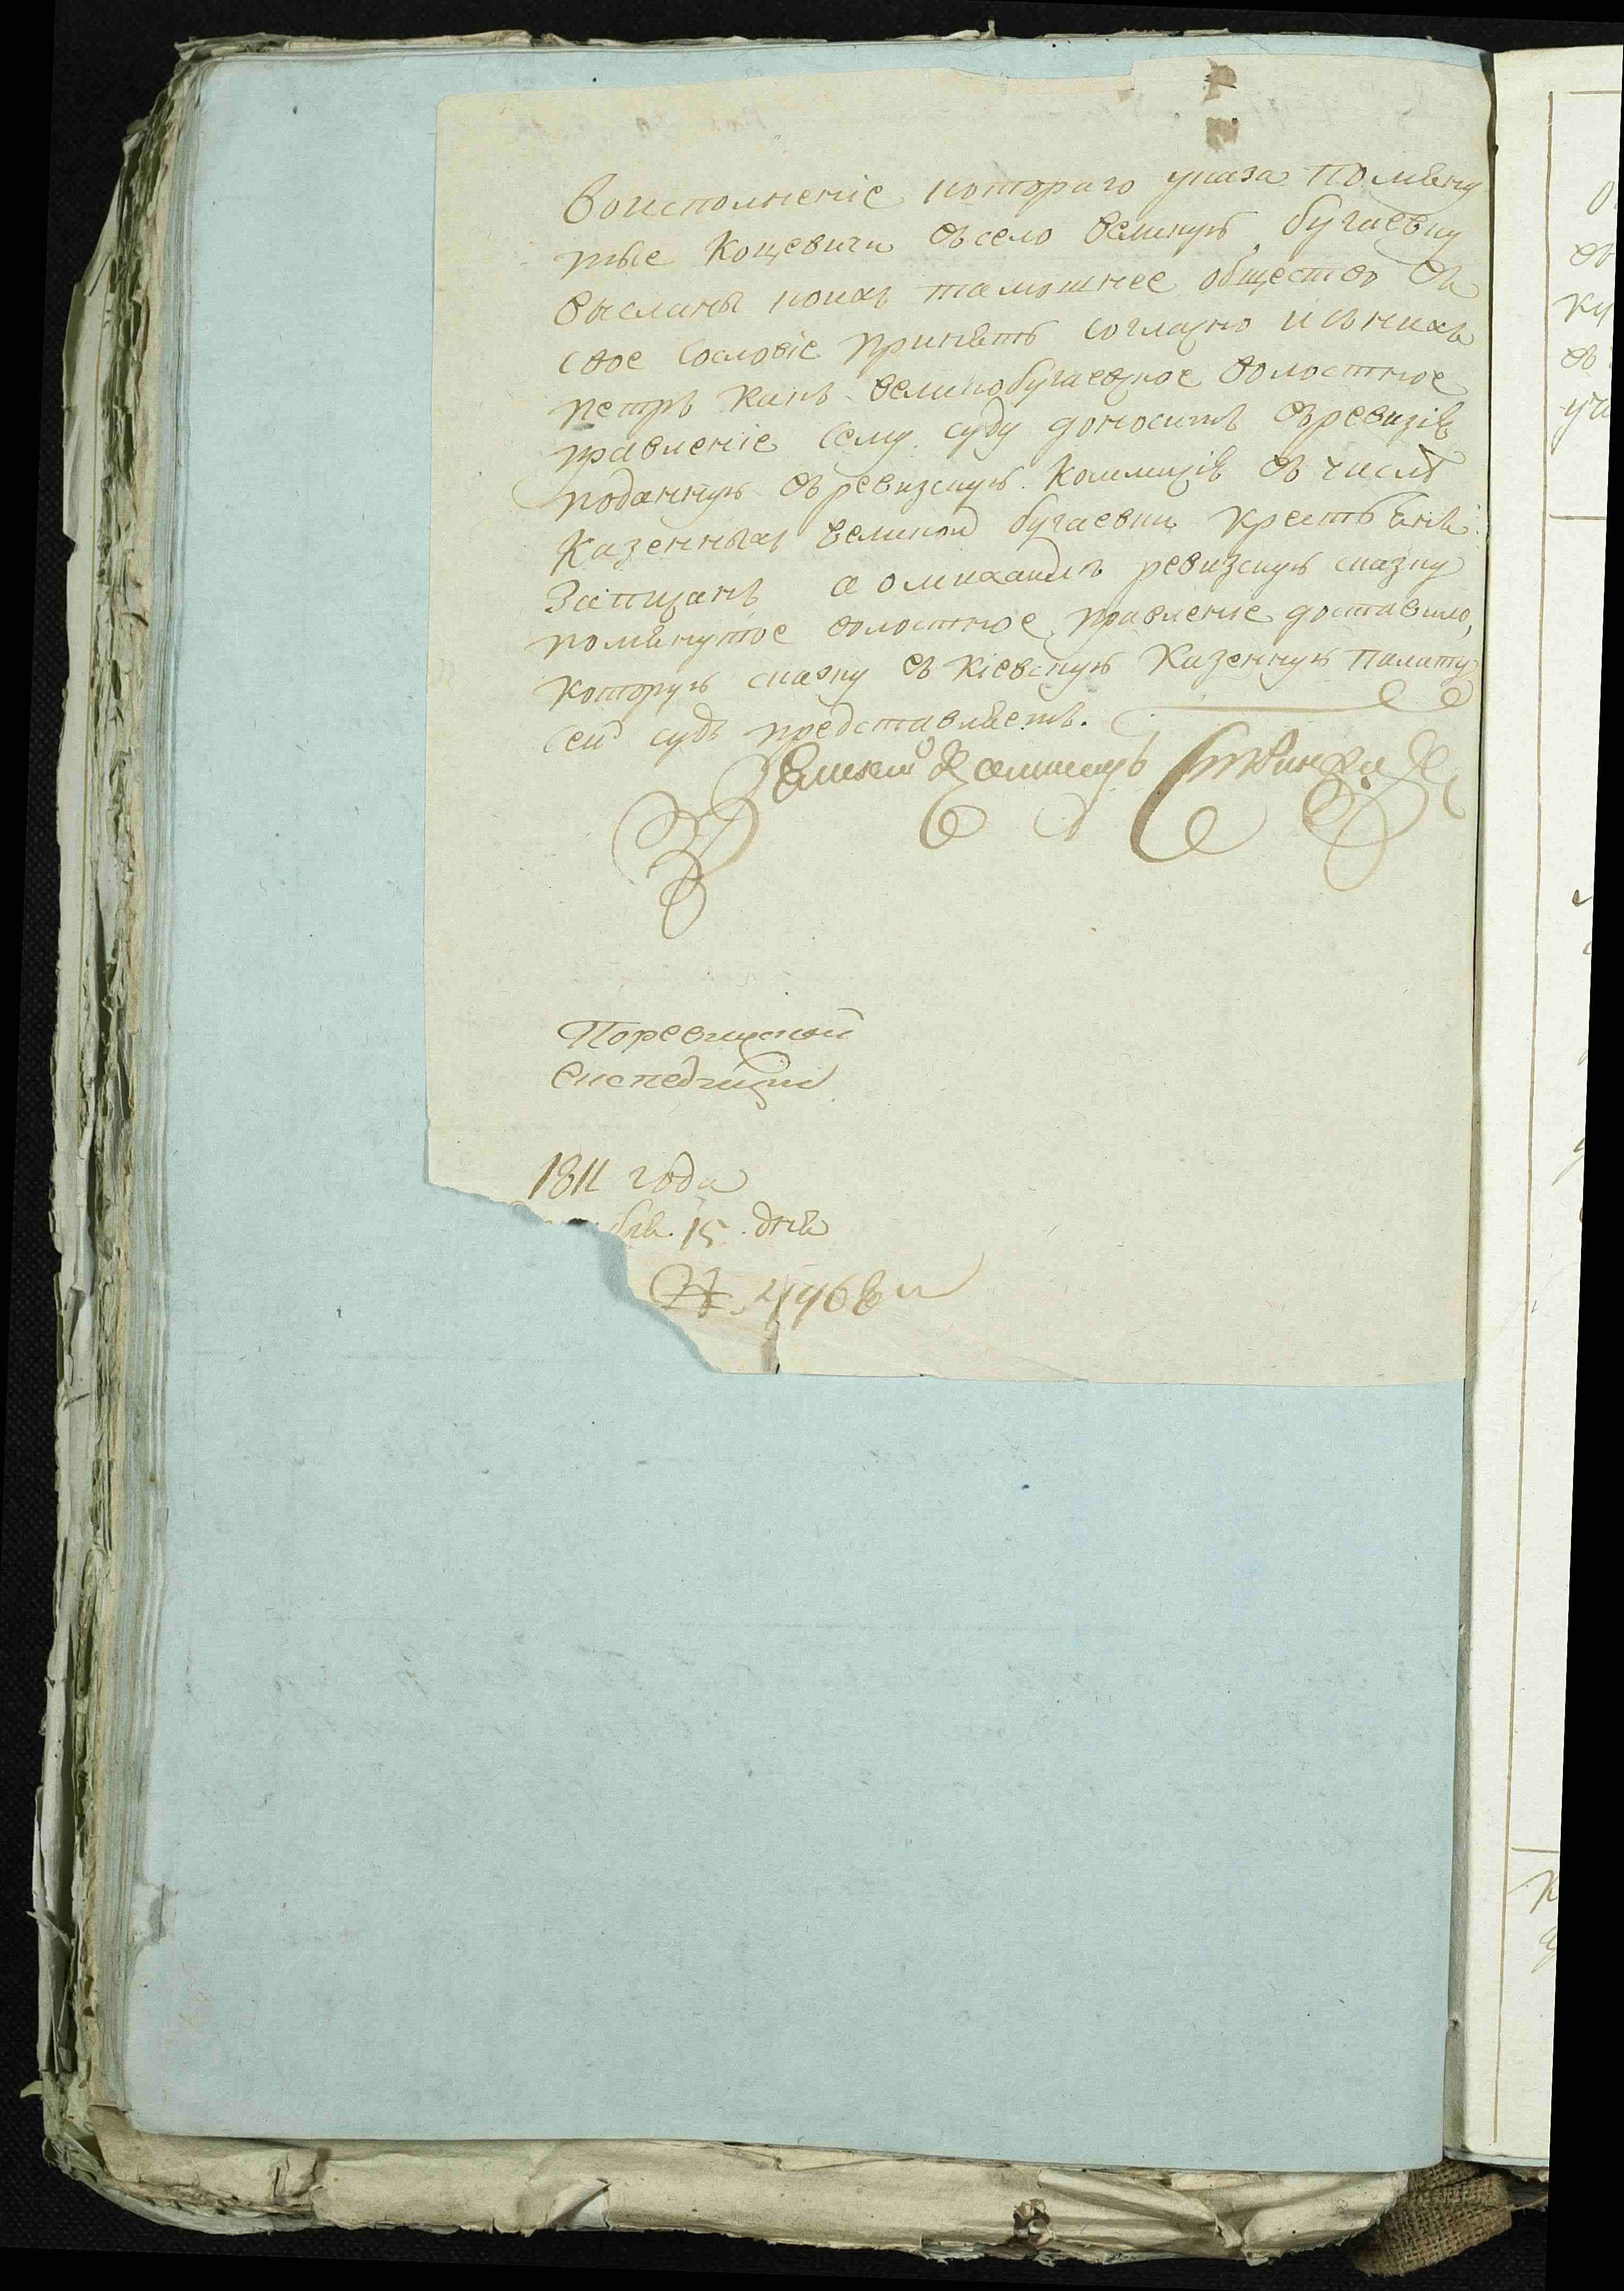 Воисполненіе котораго указа помяну
тые Коцевичи въ село великую бугаевку
высланы и онихъ тамошнее общество въ
свое сословіе принять согласно и съ нихъ
петръ какъ великобугаевское волостное
правленіе сему суду доноситъ въ ревизію
поданную въ ревизскую коммисію въ числѣ
казенныхъ великой бугаевки крестьянъ
записанъ а о михаилѣ ревизскую сказку
помянутое волостное правленіе доставило,
которую сказку въ кіевскую казенную палату
сей судъ представляетъ.
По ревизской
експедиции
1811 года
бря 15 дня
№